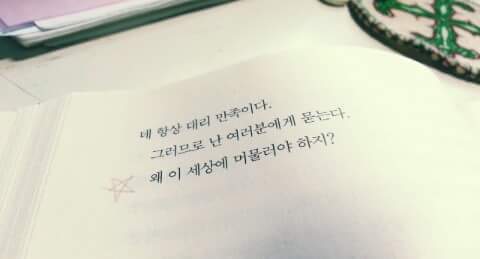 네 항상 대리 만족이다.
그러므로 난 여러분에게 묻는다.
왜 이 세상에 머물러야 하지?